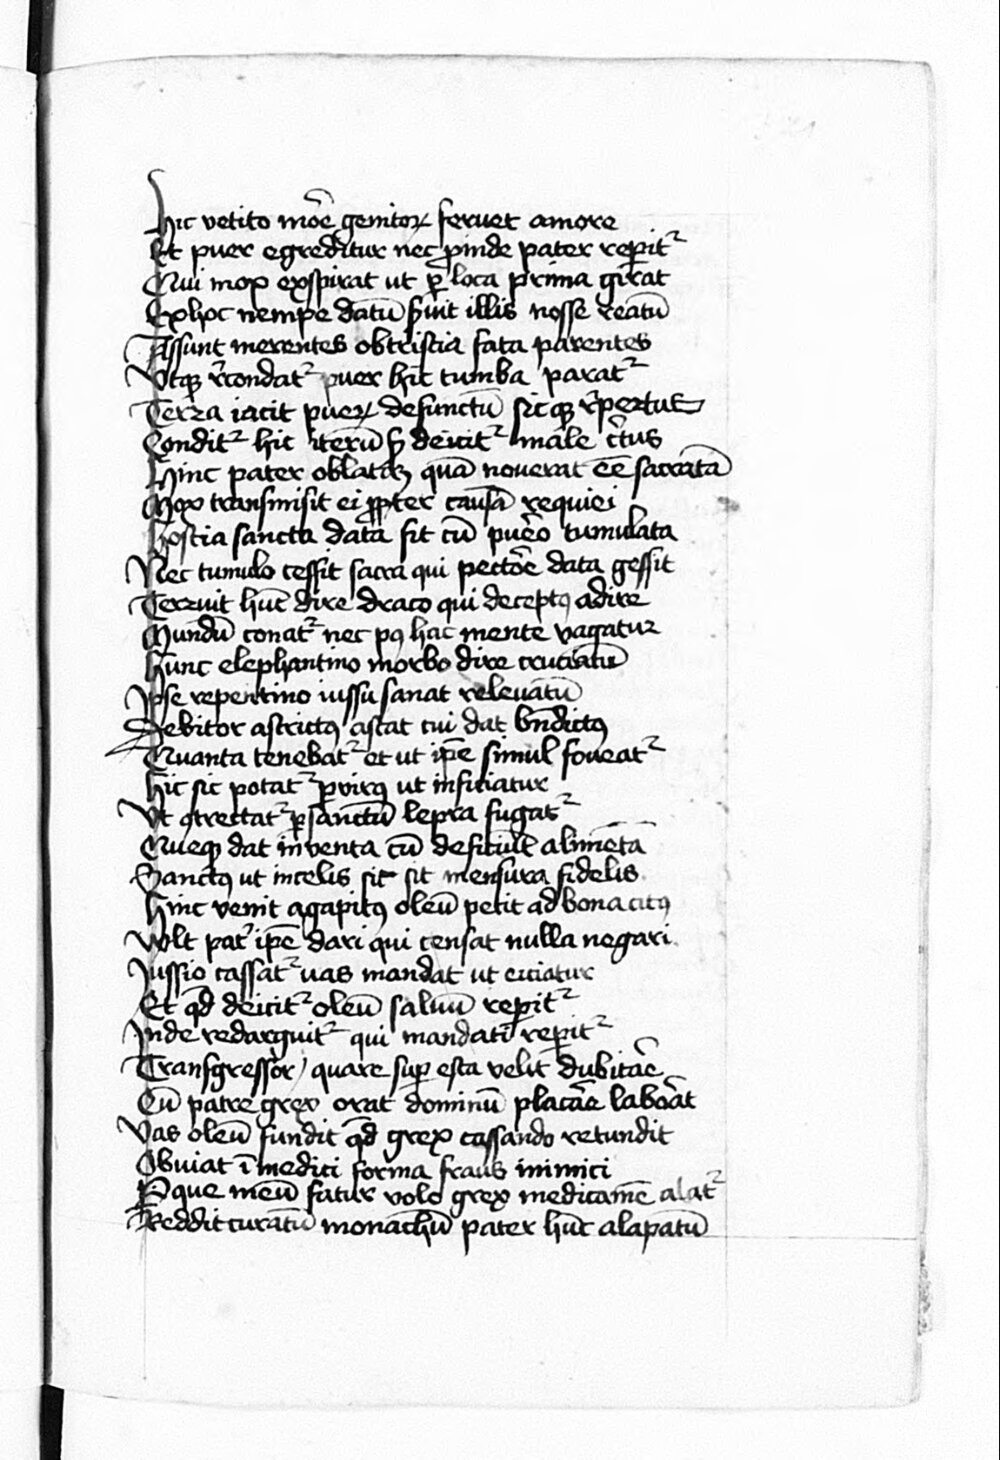 Hic vetito mōe genitoꝝ feruet amore
Et puer egreditur nec ꝓinde pater reperit᷑
Qui mox exspirat ut ꝑ loca prima girat
Ex hoc nempe datū fuit illis nosse reatū
Assunt merentes obtristia fata parentes
Vtqꝫ r̄condat᷑ puer hic tumba parat᷑
Terra iacit pueꝝ defunctū sicqꝫ r̄pertus
Condit᷑ hic iterū s̄ deicit᷑ male c̄tus
Hinc pater oblatā quā noverat ēe sacratā
Mox transmisit ei ꝓpter causā requiei
Hostia sancta data fit cū puero tumulata
Nec tumulo cessit sacra qui pectōe data gessit
Terruit hūc dire draco qui deceptꝰ adire
Mundū conat᷑ nec pꝰ hac mente vagatur
Hunc elephantino morbo dire cruciatū
Ipse repentino iussu sanat relevatū
Debitor astrictꝰ astat cui dat bn̄dictꝰ
Quanta tenebat᷑ et ut ip̄e simul foveat᷑
Hic sic potat᷑ ꝑ virꝰ ut inficiatur
Vt ꝯtrectat᷑ ꝑ sanctū lepra fugat᷑
Queqꝫ dat inventa cū deficiūt alimēta
Sanctꝰ ut in celis sic sit mensura fidelis
Hinc venit agapitꝰ oleū petit ad bona citꝰ
Wlt pat᷑ ip̄e dari qui censat nulla negari
Jussio cassat᷑ vas mandat ut eiciatur
Et qd̄ deicit᷑ oleū salvū reperit᷑
Inde redarguit᷑ qui mandati reperit᷑
Transgressor quare suꝑ esta velit dubitāe
Cū patre grex orat dominū placāe laborat
Vas oleū fundit qd̄ grex cassando retundit
Obviat ī medici forma fraus inimici
Pque meū fatur volo grex medicamē alat᷑
Reddit curatū monachū pater hūc alapatū